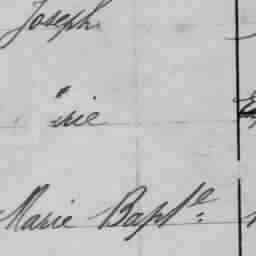 Joseph
Marie Bapt^e: